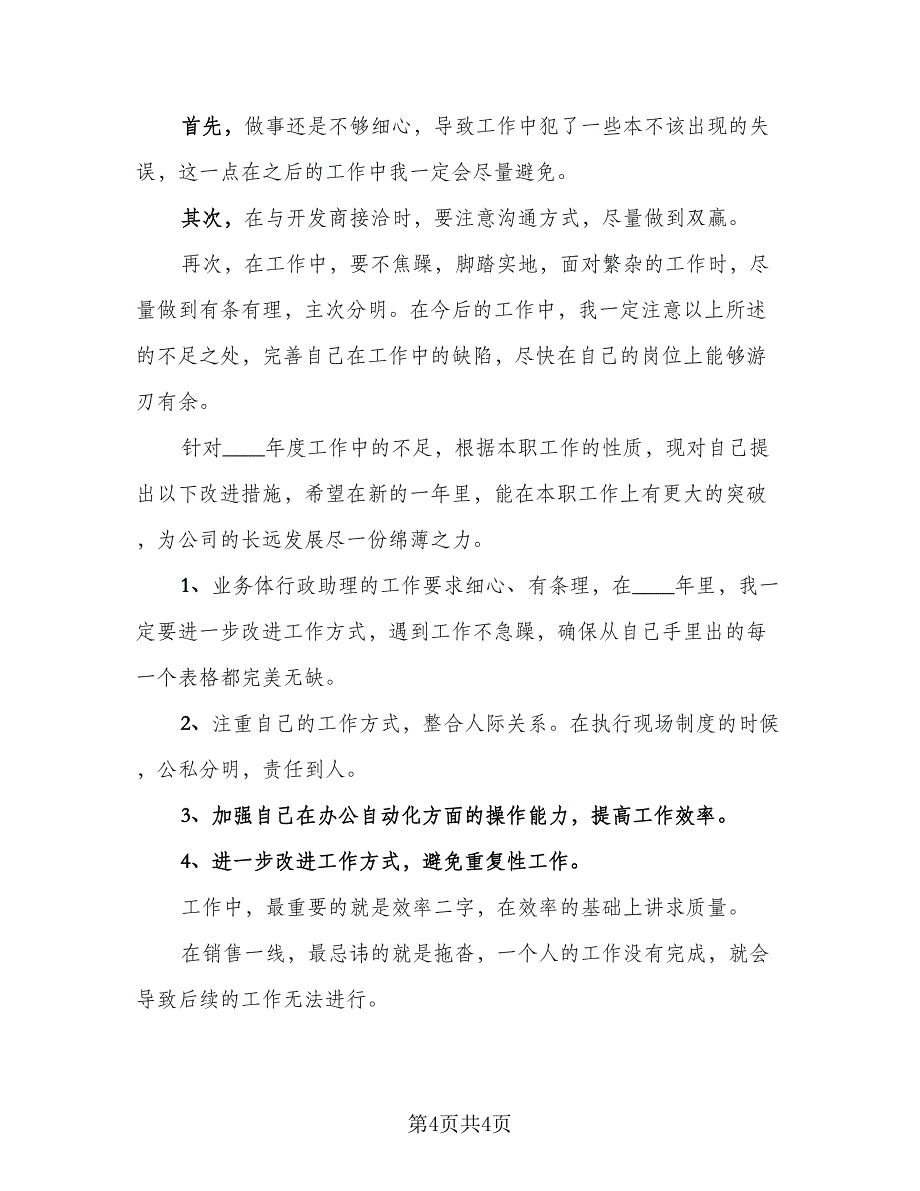 首先，做事还是不够细心，导致工作中犯了一些本不该出现的失
误，这一点在之后的工作中我一定会尽量避免。
其次，在与开发商接洽时，要注意沟通方式，尽量做到双赢。
再次，在工作中，要不焦躁，脚踏实地，面对繁杂的工作时，尽
量做到有条有理，主次分明。在今后的工作中，我一定注意以上所述
的不足之处，完善自己在工作中的缺陷，尽快在自己的岗位上能够游
刃有余。
针对____年度工作中的不足，根据本职工作的性质，现对自己提
出以下改进措施，希望在新的一年里，能在本职工作上有更大的突破
，为公司的长远发展尽一份绵薄之力。
1、业务体行政助理的工作要求细心、有条理，在____年里，我一
定要进一步改进工作方式，遇到工作不急躁，确保从自己手里出的每
一个表格都完美无缺。
2、注重自己的工作方式，整合人际关系。在执行现场制度的时候
，公私分明，责任到人。
3、加强自己在办公自动化方面的操作能力，提高工作效率。
4、进一步改进工作方式，避免重复性工作。
工作中，最重要的就是效率二字，在效率的基础上讲求质量。
在销售一线，最忌讳的就是拖沓，一个人的工作没有完成，就会
导致后续的工作无法进行。
第4页共4页